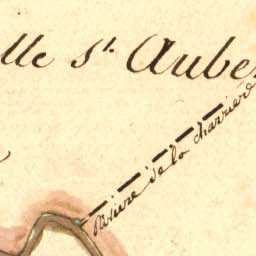 lle St. Aube
Riviere de la Charriere